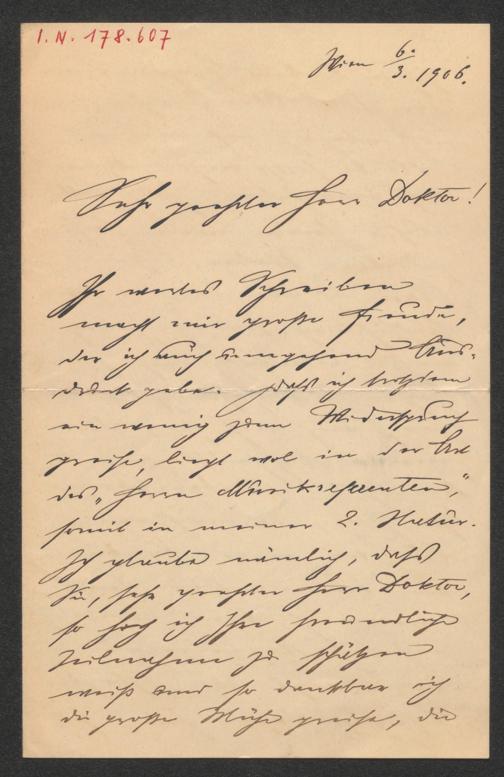 I. N. 178.607
Wien 6./3. 1906.
Sehr geehrter Herr Doktor!
Ihr wertes Schreiben
macht mir große Freude,
der ich auch umgehend Aus-
druck gebe. Daß ich trotzdem
ein wenig zum Widerspruch
greife, liegt wol in der Art
des "Herrn Musikreferenten",
somit in meiner 2. Natur.
Ich glaube nämlich, daß
Sie, sehr geehrter Herr Doktor,
so hoch ich Ihre freundliche
Teilnahme zu schätzen
weiß und so dankbar ich
die große Mühe preise, die